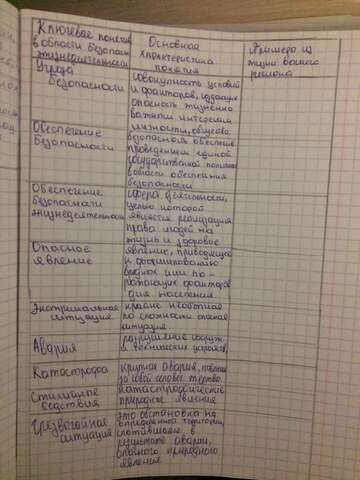 Ключевые понятия
в области безопасн.
жизнедеятельности
Основная
характеристика
понятия
Примеры из
жизни вашего
региона
Угроза
безопасности
совокупность условий
и факторов, создающих
опасность жизненно
важным интересам
личности, общества
Обеспечение
безопасности
безопасность обеспеч.
проведением единой
государственной политики
в области обеспечения
безопасности
Обеспечение
безопасности
жизнедеятельности
сфера деятельности,
целью которой
является реализация
права людей на
жизнь и здоровье
Опасное
явление
явление, приводящее
к формированию
вредных или по-
ражающих факторов
для населения
Экстримальная
ситуация
крайне необычная
по сложности опасная
ситуация
Авария
разрушение сооруж.
и технических устройств,
Катастрофа
крупная авария, повлек.
за собой человес. жертво.
Стихийные
бедствия
катастрофические
природные явления
Чрезвычайная
ситуация
это обстановка на
определенной территории,
сложившаяся в
результате аварии,
опасного природного
явления